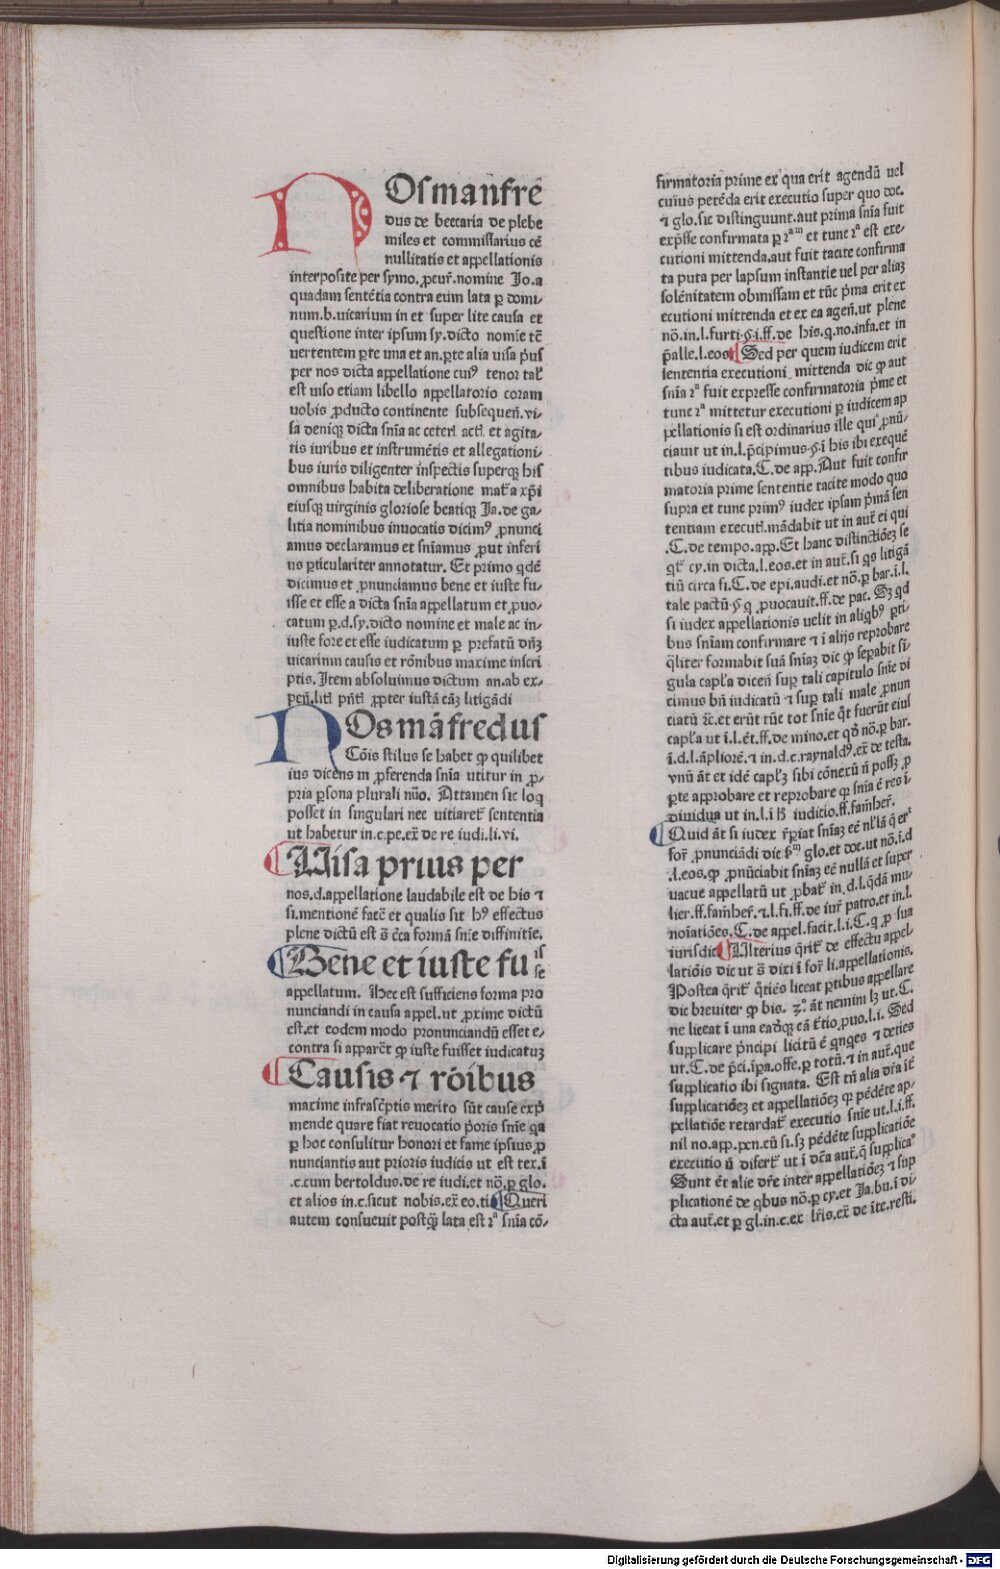 NOs manfre᷑
dus de beccaria de plebe
miles et commissarius cē
nullitatis et appellationis
interposite per symo. ꝓcur̄. nomine Jo. a
quadam sentētia contra eum lata ꝑ domi-
num. b. uicarium in et super lite causa et
questione inter ipsum sy. dicto nomīe tē
uertentem ꝑte una et an. ꝑte alia uisa p̄us
per nos dicta appellatione cuiꝰ tenor tal̄
est uiso etiam libello appellatorio coram
uobis ꝓducto continente subsequen̄. vi-
sa deniqꝫ dicta sn̄ia ac ceteri acti et agita-
tis iuribus et instrumētis et allegationi-
bus iuris diligenter inspectis superqꝫ his
omnibus habita deliberatione mat̄a xp̄i
eiusqꝫ virginis gloriose beatiqꝫ Ja. de ga-
litia nominibus inuocatis dicimꝰ ꝓnunci
amus declaramus et sn̄iamus ꝓut inferi
us ꝑticulariter annotatur. Et primo qdē
dicimus et ꝓnunciamus bene et iuste fu-
isse et esse a dicta sn̄ia appellatum et ꝓuo-
catum ꝑ. d. sy. dicto nomine et male ac in-
iuste fore et esse iudicatum ꝑ prefatū dn̄ꝫ
uicarium causis et rōnibus maxime inscri
ptis. Item absoluimus dictum an. ab ex-
pen̄. liti p̄nti ꝓpter iustā cāꝫ litigādi
NOs māfredus
Cōis stilus se habet ꝙ quilibet
ius dicens in ꝓferenda sn̄ia utitur in ꝓ-
pria ꝑsona plurali nūo. Attamen sic loq
posset in singulari nec uitiaret̄ sententia
ut habetur in. c. pe. ex̄. de re iudi. li. vi.
Uisa prius per
nos. d. appellatione laudabile est de his ⁊
si. mentionē facē et qualis sit hꝰ effectus
plene dictū est s̄ c̄ca formā sn̄ie diffinitīe.
Bene et iuste fu is
se
appellatum. Hec est sufficiens forma pro
nunciandi in causa appel. ut ꝓxime dictū
est. et eodem modo pronunciandū esset e-
contra si apparet̄ ꝙ iuste fuisset iudicatuꝫ
Causis ⁊ rōibus
maxime infrasc̄ptis merito sūt cause exp̄
mende quare fiat reuocatio p̄oris sn̄ie qa
ꝑ hoc consulitur honori et fame ipsius ꝓ
nunciantis aut prioris iudicis ut est tex. ī
. c. cum bertoldus. de re iudi. et nō. ꝑ glo.
et alios in. c. sicut nobis. ex̄ eo. ti. Queri
autem consueuit postqꝫ lata est 2ᵃ sn̄ia cō-
firmatoria prime ex qua erit agendū uel
cuius petēda erit executio super quo doc.
⁊ glo. sic distinguunt. aut prima sn̄ia fuit
exp̄sse confirmata ꝑ 2ᵃᵐ et tunc 2ᵃ est exe-
cutioni mittenda. aut fuit tacite confirma
ta puta per lapsum instantie uel per aliaꝫ
solēnitatem obmissam et tūc p̄ma erit ex
ecutioni mittenda et ex ea agen̄. ut plene
nō. in. l. furti. §. i. ff. de his. q. no. infa. et in
p̄alle. l. eos. Sed per quem iudicem erit
sententia executioni mittenda dic ꝙ aut
sn̄ia 2ᵃ fuit expresse confirmatoria p̄me et
tunc 2ᵃ mittetur executioni ꝑ iudicem ap
pellationis si est ordinarius ille qui ꝓnū-
ciauit ut in. l. p̄cipimus. §. i his ibi exequē
tibus iudicata. C. de app. Aut fuit confir
matoria prime sententie tacite modo quo
supra et tunc primꝰ iudex ipsam p̄mā sen
tentiam executi. mādabit ut in aut̄ ei qui
. C. de tempo. app. Et hanc distinctiōeꝫ se
qt̄ cy. in dicta. l. eos. et in aut̄. si qs litigā
tiū circa fi. C. de epi. audi. et nō. ꝑ bar. i. l.
tale pactū. §. q ꝓuocauit. ff. de pac. Sꝫ qd
si iudex appellationis uelit in aliqbꝰ ꝑti-
bus sn̄iam confirmare ⁊ ī alijs reprobare
q̄liter formabit suā sn̄iaꝫ dic ꝙ seꝑabit si-
gula capl̄a dicen̄ suꝑ tali capitulo sn̄ie di
cimus bn̄ iudicatū ⁊ suꝑ tali male ꝓnun
ciatū ⁊c. et erūt tūc tot sn̄ie q̄t fuerūt eius
capl̄a ut ī. l. et̄. ff. de mino. et qd̄ nō. ꝑ bar.
ī. d. l. āpliorē. ⁊ in. d. c. raynaldꝰ. ex̄ de testa.
vnū āt et idē capl̄ꝫ sibi cōnexū n̄ possꝫ ꝓ
ꝑte approbare et reprobare qꝛ sn̄ia ē res ī-
diuidua ut in. l. i h̄ iudicio. ff. fam̄her̄.
Quid āt si iudex r̄periat sn̄iaꝫ eē nl̄lā q̄ er̄
for̄ ꝓnunciādi dic p̄ᵐ glo. et doc. ut nō. ī. d
. l. eos. ꝙ ꝓnūciabit sn̄iaꝫ eē nullā et super
uacue appellatū ut ꝓbat̄ in. d. l. q̄dā mu-
lier. ff. fam̄her̄. ⁊. l. fi. ff. de iur̄ patro. et in. l.
noīatiōes. C. de appel. facit. l. i. C. q ꝓ sua
iurisdic. Ulterius q̄rit̄ de effectu appel-
latiōis dic ut s̄ dixi ī for̄ li. appellationis.
Postea q̄rit̄ q̄tiēs liceat ꝑtibus appellare
dic breuiter ꝙ bis. 3º. āt nemini lꝫ ut. C.
ne liceat ī una eadēqꝫ cā t̄tio ꝓuo. l. i. Sed
supplicare p̄ncipi licitū ē qnqes ⁊ decies
ut. C. de p̄ci. īꝑa. offe. ꝑ totū. ⁊ in aut̄. que
supplicatio ibi signata. Est tn̄ alia dr̄a īt̄
supplicatiōeꝫ et appellatiōeꝫ qꝛ pēdēte ap-
pellatiōe retardat̄ executio sn̄ie ut. l. i. ff.
nil no. app. pen. cū si. sꝫ pēdēte supplicatiōe
executio n̄ differt̄ ut ī dc̄a aut̄. q̄ supplicaᵒ
Sunt et̄ alie dr̄e inter appellatiōeꝫ ⁊ sup
plicationē de qbus nō. ꝑ cy. et Ja. bu. ī di-
cta aut̄. et ꝑ gl. in. c. ex lr̄is. ex̄ de īte. resti.
Digitalisierung gefördert durch die Deutsche Forschungsgemeinschaft - DFG